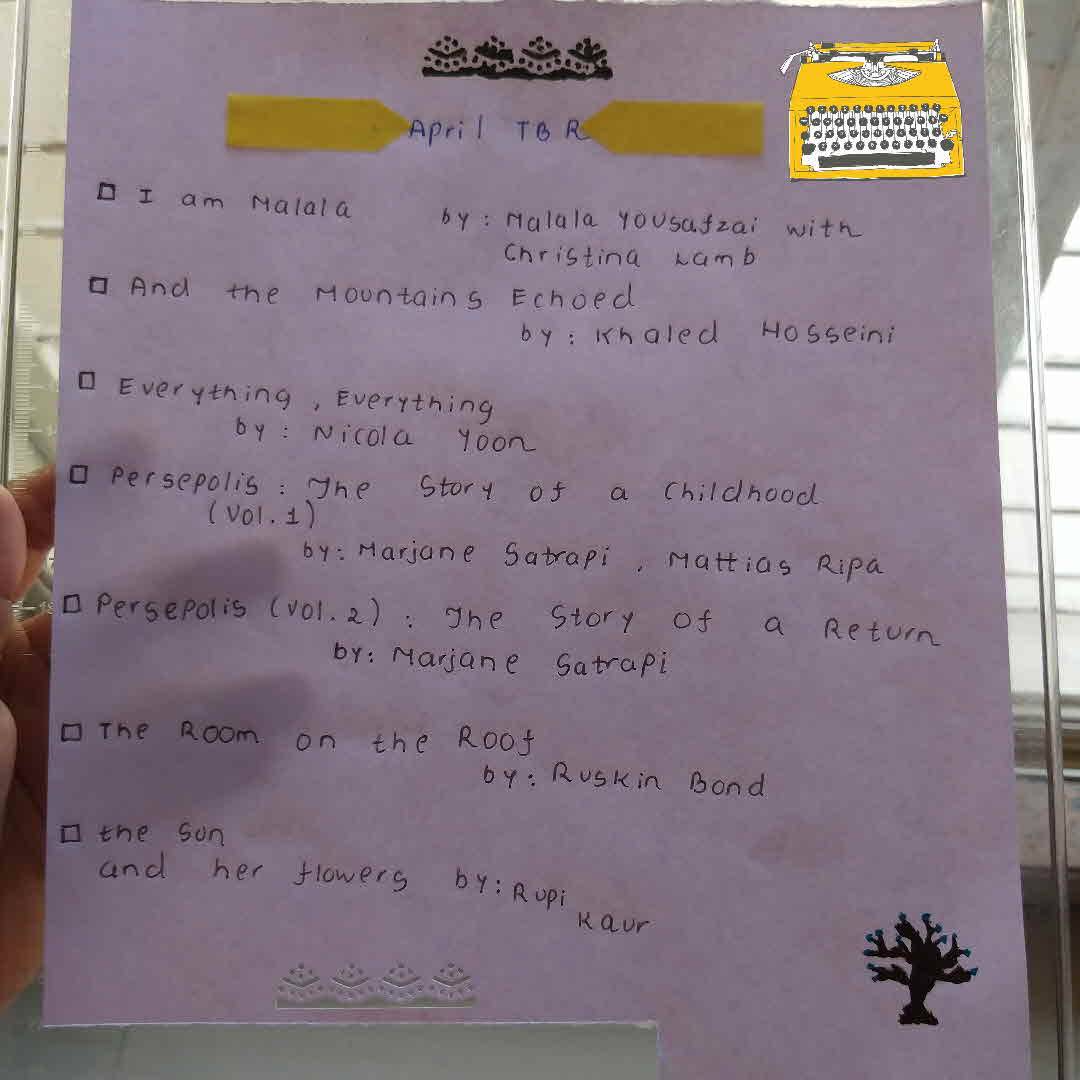 April TBR
I am Malala by: Malala Yousafzai with
Christina Lamb
And the Mountains Echoed
by: Khaled Hosseini
Everything, Everything
by: Nicola Yoon
Persepolis: The Story of a Childhood
(Vol. 1)
by: Marjane Satrapi, Mattias Ripa
Persepolis (Vol. 2): The Story of a Return
by: Marjane Satrapi
The Room on the Roof
by: Ruskin Bond
the sun
and her flowers by: Rupi
Kaur